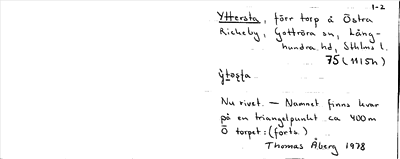 1-2
Yttersta, förr torp å Östra
Rickeby, Gottröra sn, Lång-
hundra hd, Sthlms l.
75 (11I5h)
Nu rivet. — Namnet finns kvar
på en triangelpunkt ca 400m
Ö torpet: (forts.)
Thomas Åberg 1978